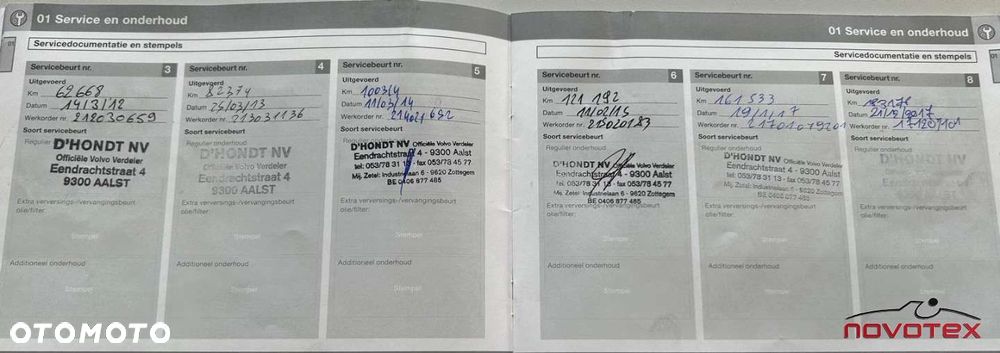 01 Service en onderhoud
Servicedocumentatie en stempels
Servicebeurt nr. 3
Uitgevoerd
Km 62668
Datum 14/3/12
Werkorder nr. 212030659
Soort servicebeurt
Regulier onderhoud
D'HONDT NV
Officiële Volvo Verdeler
Eendrachtstraat 4
9300 AALST
Extra verversings-/vervangingsbeurt
olie/filter:
Stempel
Additioneel onderhoud
Stempel
Servicebeurt nr. 4
Uitgevoerd
Km 82374
Datum 25/03/13
Werkorder nr. 213031136
Soort servicebeurt
Regulier onderhoud
D'HONDT NV
Officiële Volvo Verdeler
Eendrachtstraat 4
9300 AALST
Extra verversings-/vervangingsbeurt
olie/filter:
Stempel
Additioneel onderhoud
Stempel
Servicebeurt nr. 5
Uitgevoerd
Km 100314
Datum 11/03/14
Werkorder nr.
Soort servicebeurt
D'HONDT NV Officiële Volvo Verdeler
Eendrachtstraat 4 - 9300 Aalst
tel: 053/78 31 13 - fax 053/78 45 77
Mij. Zetel: Industrielaan 6 - 9620 Zottegem
BE 0406 877 485
Extra verversings-/vervangingsbeurt
olie/filter:
Stempel
Additioneel onderhoud
Stempel
01 Service en onderhoud
Servicedocumentatie en stempels
Servicebeurt nr. 6
Uitgevoerd
Km 121 192
Datum 11/02/15
Werkorder nr. 215020183
Soort servicebeurt
Regulier onderhoud
D'HONDT NV Officiële Volvo Verdeler
Eendrachtstraat 4 - 9300 Aalst
tel: 053/78 31 13 - fax 053/78 45 77
Mij. Zetel: Industrielaan 6 - 9620 Zottegem
BE 0406 877 485
Extra verversings-/vervangingsbeurt
olie/filter:
Stempel
Additioneel onderhoud
Stempel
Servicebeurt nr. 7
Uitgevoerd
Km 161 533
Datum 19/1/17
Werkorder nr.
Soort servicebeurt
Regulier onderhoud
D'HONDT NV Officiële Volvo Verdeler
Eendrachtstraat 4 - 9300 Aalst
tel: 053/78 31 13 - fax 053/78 45 77
Mij. Zetel: Industrielaan 6 - 9620 Zottegem
BE 0406 877 485
Extra verversings-/vervangingsbeurt
olie/filter:
Stempel
Additioneel onderhoud
Servicebeurt nr. 8
Uitgevoerd
Km
Datum 21/12/2017
Werkorder nr.
Soort servicebeurt
Regulier onderhoud
Extra verversings-/vervangingsbeurt
olie/filter:
Stempel
Additioneel onderhoud
OTOMOTO
NOVOTEX